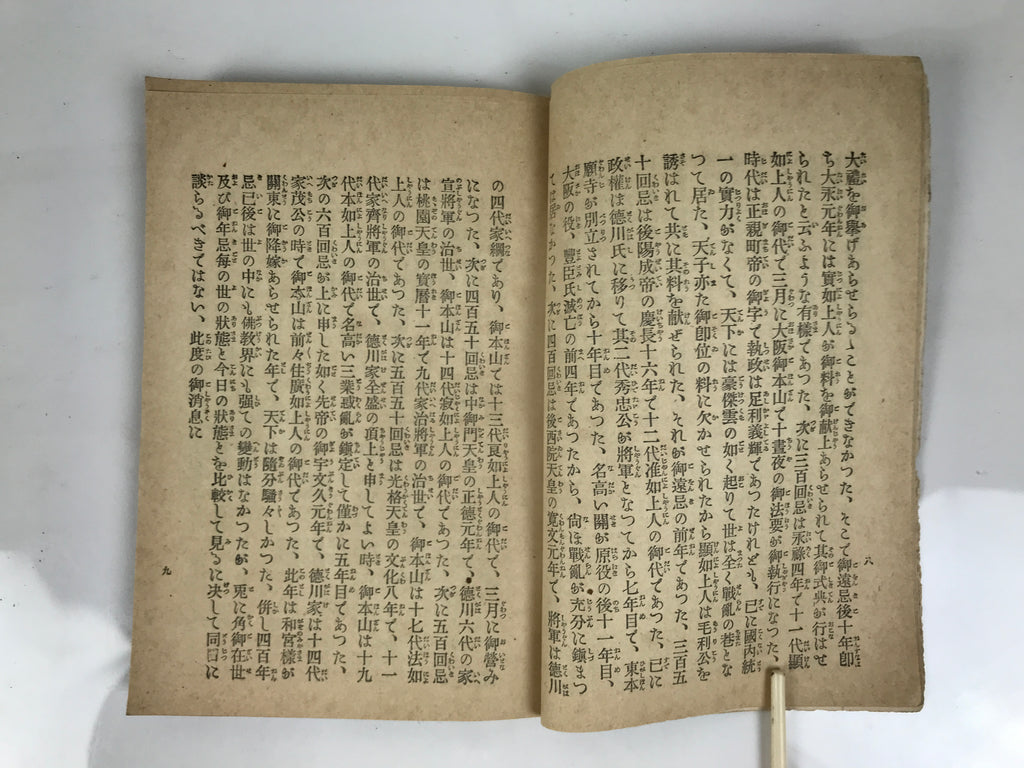 大禮を御擧げあらせらるゝことができなかつた、そこで御遠忌後十年卽
ち大永元年には實如上人が御料を御献上あらせられて其御式典が行はせ
られたと云ふような有樣であつた、次に三百回忌は永祿四年で十一代顯
如上人の御代で三月に大阪御本山で十晝夜の御法要が御執行になつた、
時代は正親町帝の御字で執政は足利義輝であつたけれども、已に國内統
一の實力がなくて、天下には豪傑雲の如く起りて世は全く戰亂の巷とな
つて居た、天子亦た御卽位の料に欠かせられたから顯如上人は毛利公を
誘はれて共に其料を献ぜられた、それが御遠忌の前年であつた、三百五
十回忌は後陽成帝の慶長十六年で十二代准如上人の御代であつた、已に
政權は德川氏に移りて其二代秀忠公が將軍となつてから七年目で、東本
願寺が別立されてから十年目であつた、名高い關が原役の後十一年目、
大阪の役、豐臣氏滅亡の前四年であつたから、尙ほ戰亂が充分に鎭まつ
ては居なかつた、次に四百回忌は後西院天皇の寛文元年で、將軍は德川
八
の四代家綱であり、御本山では十三代良如上人の御代で、三月に御營み
になつた、次に四百五十回忌は中御門天皇の正德元年で、德川六代の家
宣將軍の治世、御本山は十四代寂如上人の御代であつた、次に五百回忌
は桃園天皇の寶曆十一年で九代家治將軍の治世で、御本山は十七代法如
上人の御代であつた、次に五百五十回忌は光格天皇の文化八年で、十一
代家齊將軍の治世で、德川家全盛の頂上と申してよい時、御本山は十九
代本如上人の御代で名高い三業惑亂が鎭定して僅かに五年目であつた、
次の六百回忌が上に申した如く先帝の御宇文久元年で、德川家は十四代
家茂公の時で御本山は前々住廣如上人の御代であつた、此年は和宮樣が
關東に御降嫁あらせられた年で、天下は隨分騷々しかつた、併し四百年
忌已後は世の中にも佛敎界にも强ての變動はなかつたが、兎に角御在世
及び御年忌每の世の狀態と今日の狀態とを比較して見るに决して同日に
談らるべきではない、此度の御消息に
九